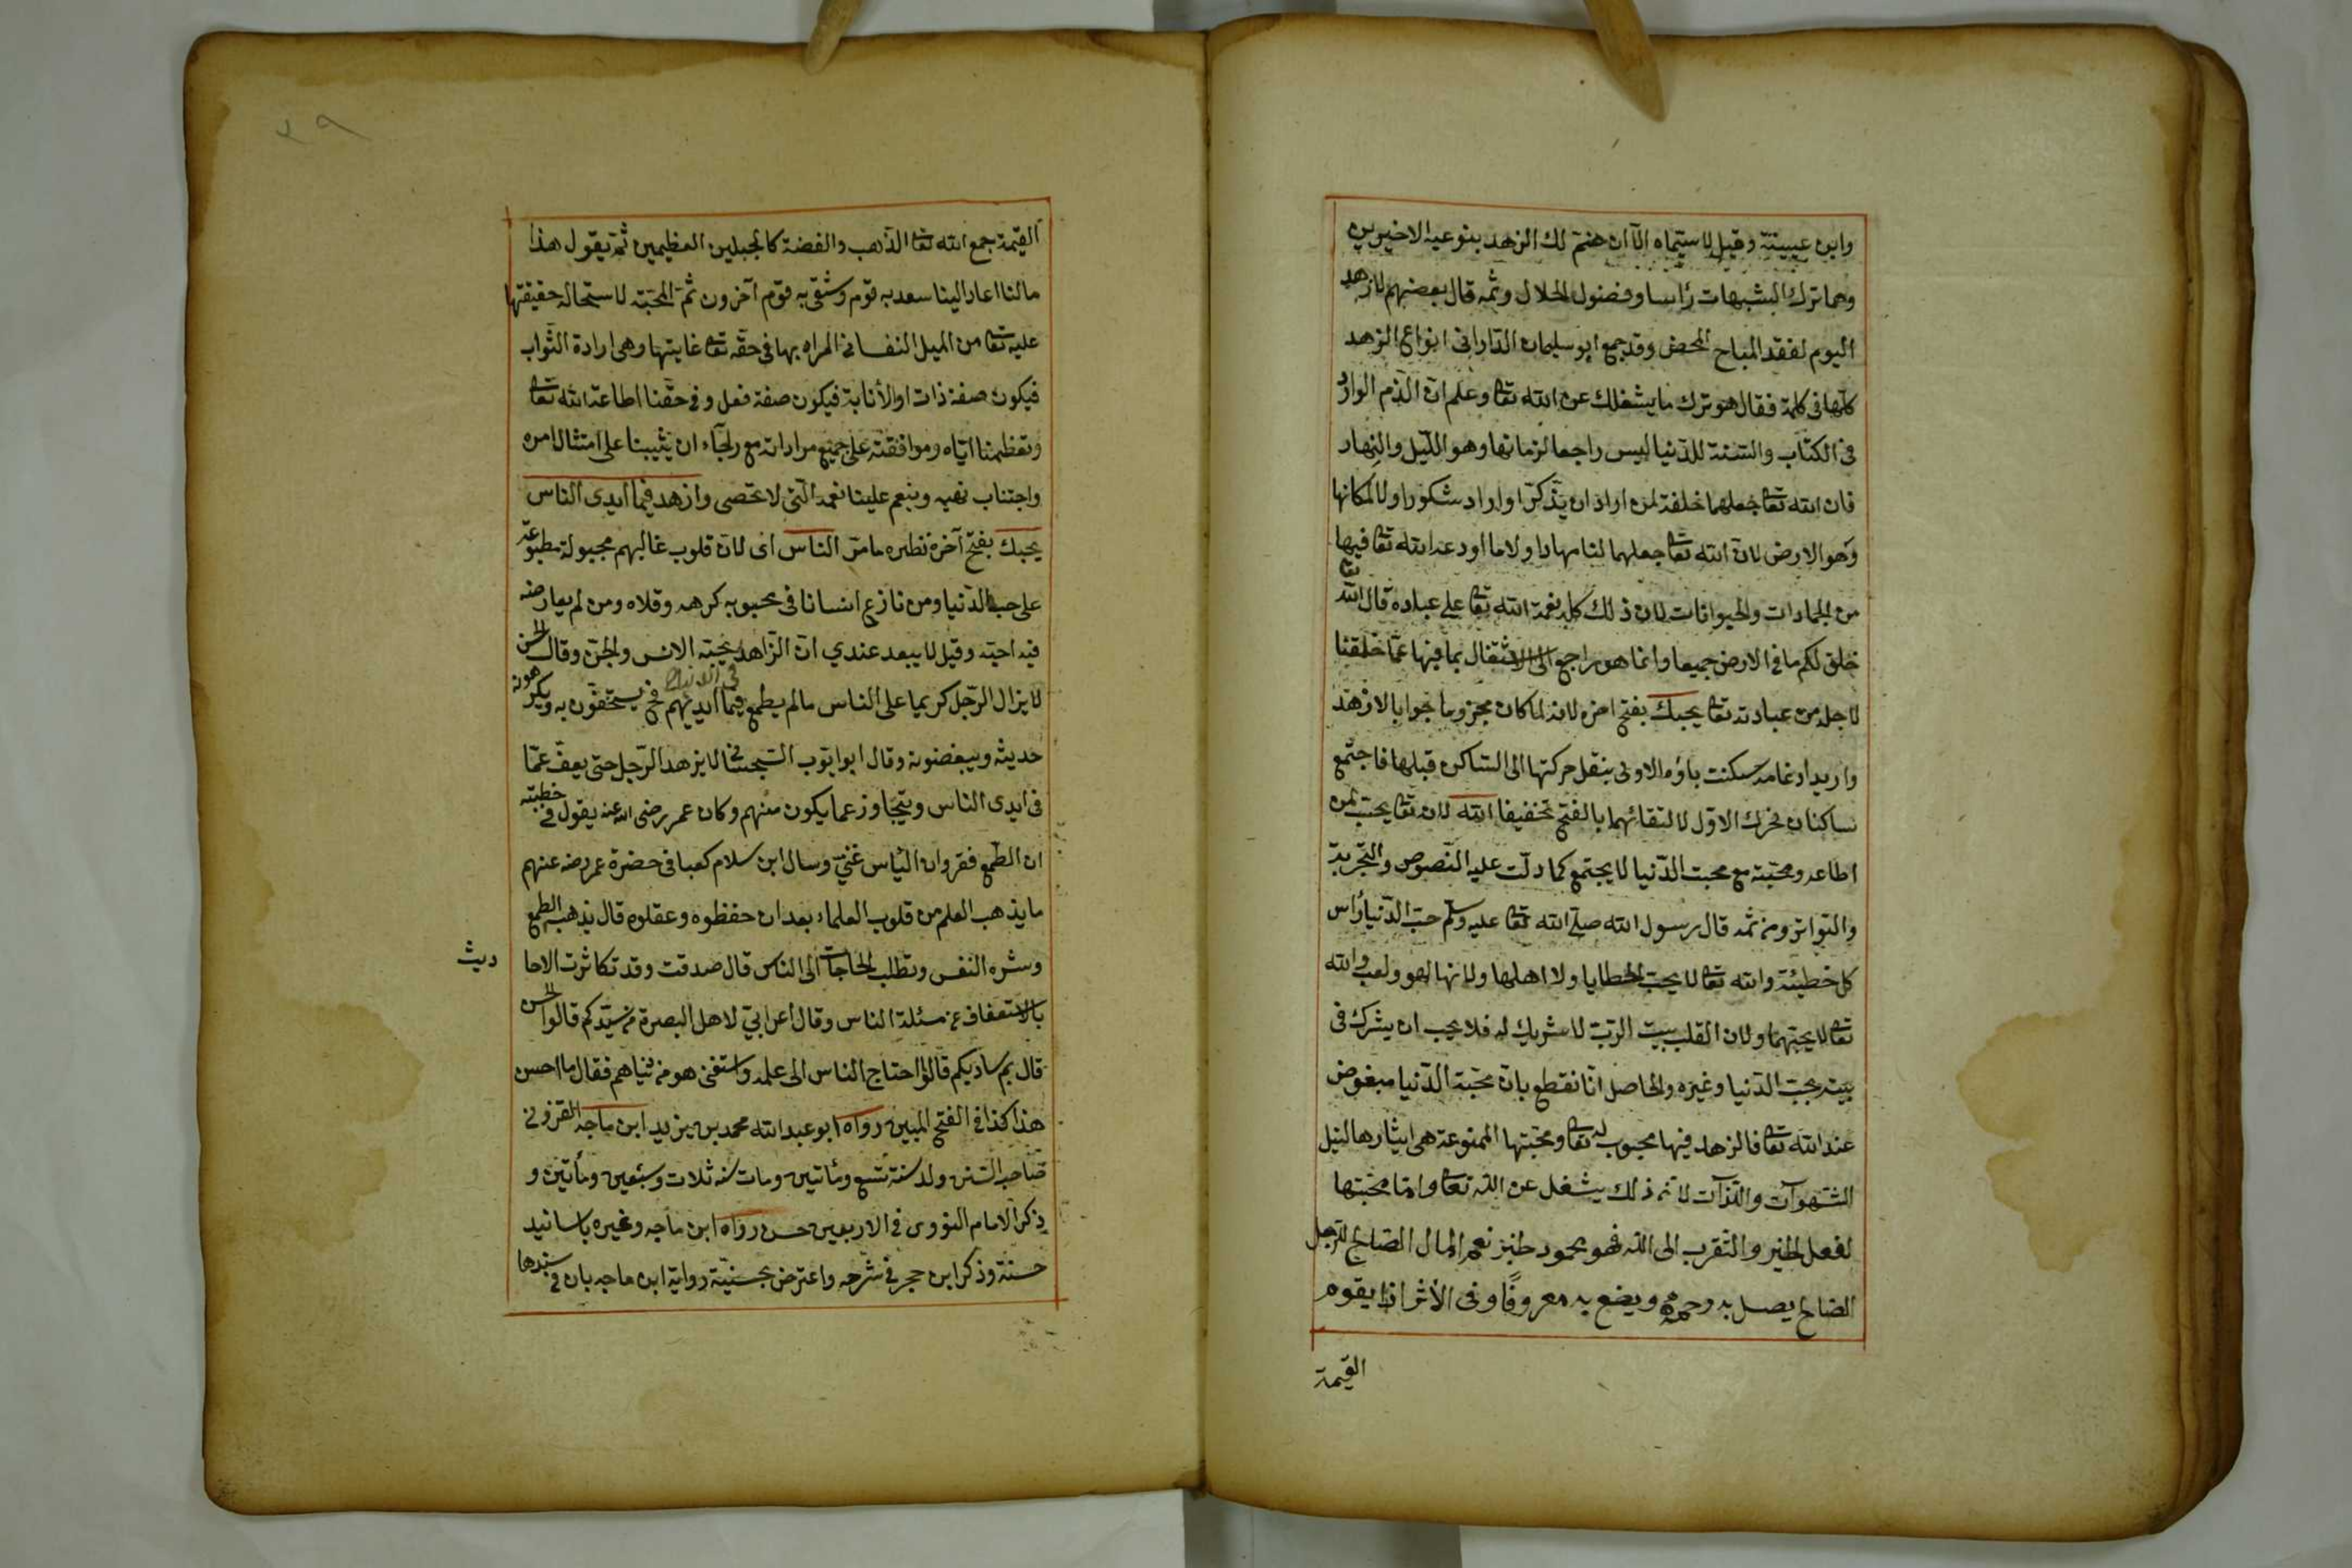 وابن عيينة وقيل لا يستماه الا ان ضم لك الزهد بنوعيه الاخيرين
وهما ترك الشبهات رأسا وفضول الحلال وثمه قال بعضهم لا زهد
اليوم لفقد المباح المحض وقد جمع ابو سليمان الداراني انواع الزهد
كلها فى كلمة فقال هو ترك ما يشغلك عن الله تعا وعلم ان الذم الوارد
فى الكتاب والسنة للدنيا ليس راجعا لزمانها وهو الليل والنهار
فان الله تعا جعلهما خلفة لمن اراد ان يذكر او اراد شكورا ولا لمكانها
وهو الارض لان الله تعا جعلهما لنا مهادا ولا ما اودعه الله تعا فيها
من الجمادات والحيوانات لان ذلك كله نعمة الله تعا على عباده قال الله تعا
خلق لكم ما فى الارض جميعا وانما هو راجع الى الاشتغال بما فيها عما خلقنا
لاجله من عبادته تعا يحبك بفتح اخره لانه لما كان مجزوما جوابا لازهد
واريد ادغامه سكنت باؤه الاولى بنقل حركتها الى الساكن قبلها فاجتمع
ساكنان فحرك الاول لالتقائهما بالفتح تخفيفا الله لان تعا يحب من
اطاعه ومحبته مع محبت الدنيا لا يجتمع كما دلت عليه النصوص والتجربة
والتواتر ومن ثمه قال رسول الله صلى الله تعا عليه وسلم حب الدنيا رأس
كل خطيئة والله تعا لا يحب الخطايا ولا اهلها ولانها لهو ولعب والله
تعا لا يحبهما ولان القلب بيت الرب لا شريك له فلا يحب ان يشرك فى
بيته بحب الدنيا وغيره والحاصل انا نقطع بان محبة الدنيا مبغوض
عند الله تعا فالزهد فيها محبوب له تعا ومحبتها الممنوعة هى ايثارها لنيل
الشهوات واللذات لان ذلك يشغل عن الله تعا واما محبتها
لفعل الخير والتقرب الى الله فهو محمود لخبر نعم المال الصالح للرجل
الصالح يصل به رحمه ويضع به معروفا وفى الأثر اذا يقوم
القيمة
٢٩
القيمة جمع الله تعا الذهب والفضة كالجبلين العظيمين ثم يقول هذا
مالنا عاد الينا سعد به قوم وشقى به قوم آخرون ثم المحبة لاستحالة حقيقتها
عليه تعا من الميل النفسانى المراد بها فى حقه تعا غايتها وهى ارادة الثواب
فيكون صفة ذات او الأثابة فيكون صفة فعل وفى حقنا اطاعة الله تعا
وتعظيمنا اياه وموافقته على جميع مراداته مع رجاء ان يثيبنا على امتثال امره
واجتناب نهيه وينعم علينا نعمه التى لا تحصى وازهد فيما ايدى الناس
يحبك بفتح آخره نظيره ما مر الناس اى لان قلوب غالبهم مجبولة مطبوعة
على حب الدنيا ومن نازع انسانا فى محبوبه كرهه وقلاه ومن لم يعارضه
فيه احبه وقيل لا يبعد عندي ان الزاهد يحبه الانس والجن وقال الحسن
لا يزال الرجل كريما على الناس ما لم يطمع فيما ايديهم فح يستخفون به ويكرهونه
حديثه ويبغضونه وقال ابو ايوب السجستانى لا يزهد الرجل حتى يعف عما
فى ايدى الناس ويتجاوز عما يكون منهم وكان عمر رضى الله عنه يقول فى خطبته
ان الطمع فقر وان اليأس غنى وسال ابن سلام كعبا فى حضرة عمر رضه عنهم
ما يذهب العلم من قلوب العلماء بعد ان حفظوه وعقلوه قال يذهبه الطمع
وشره النفس وتطلب الحاجات الى الناس قال صدقت وقد تكاثرت الاحا
ديث
بالاستعفاف عن مسئلة الناس وقال أعرابي لاهل البصرة من سيدكم قالوا الحسن
قال بم سادكم قالوا احتاج الناس الى علمه واستغنى هو من دنياهم فقال ما احسن
هذا كذا فى الفتح المبين رواه ابو عبد الله محمد بن يزيد ابن ماجه القزوينى
صاحب السنن ولد سنة تسع ومأتين ومات سنه ثلاث وسبعين ومأتين و
ذكر الامام النووى فى الاربعين حسن رواه ابن ماجه وغيره باسانيد
حسنة وذكر ابن حجر فى شرحه واعترض بحسنية رواية ابن ماجه بان فى سندها